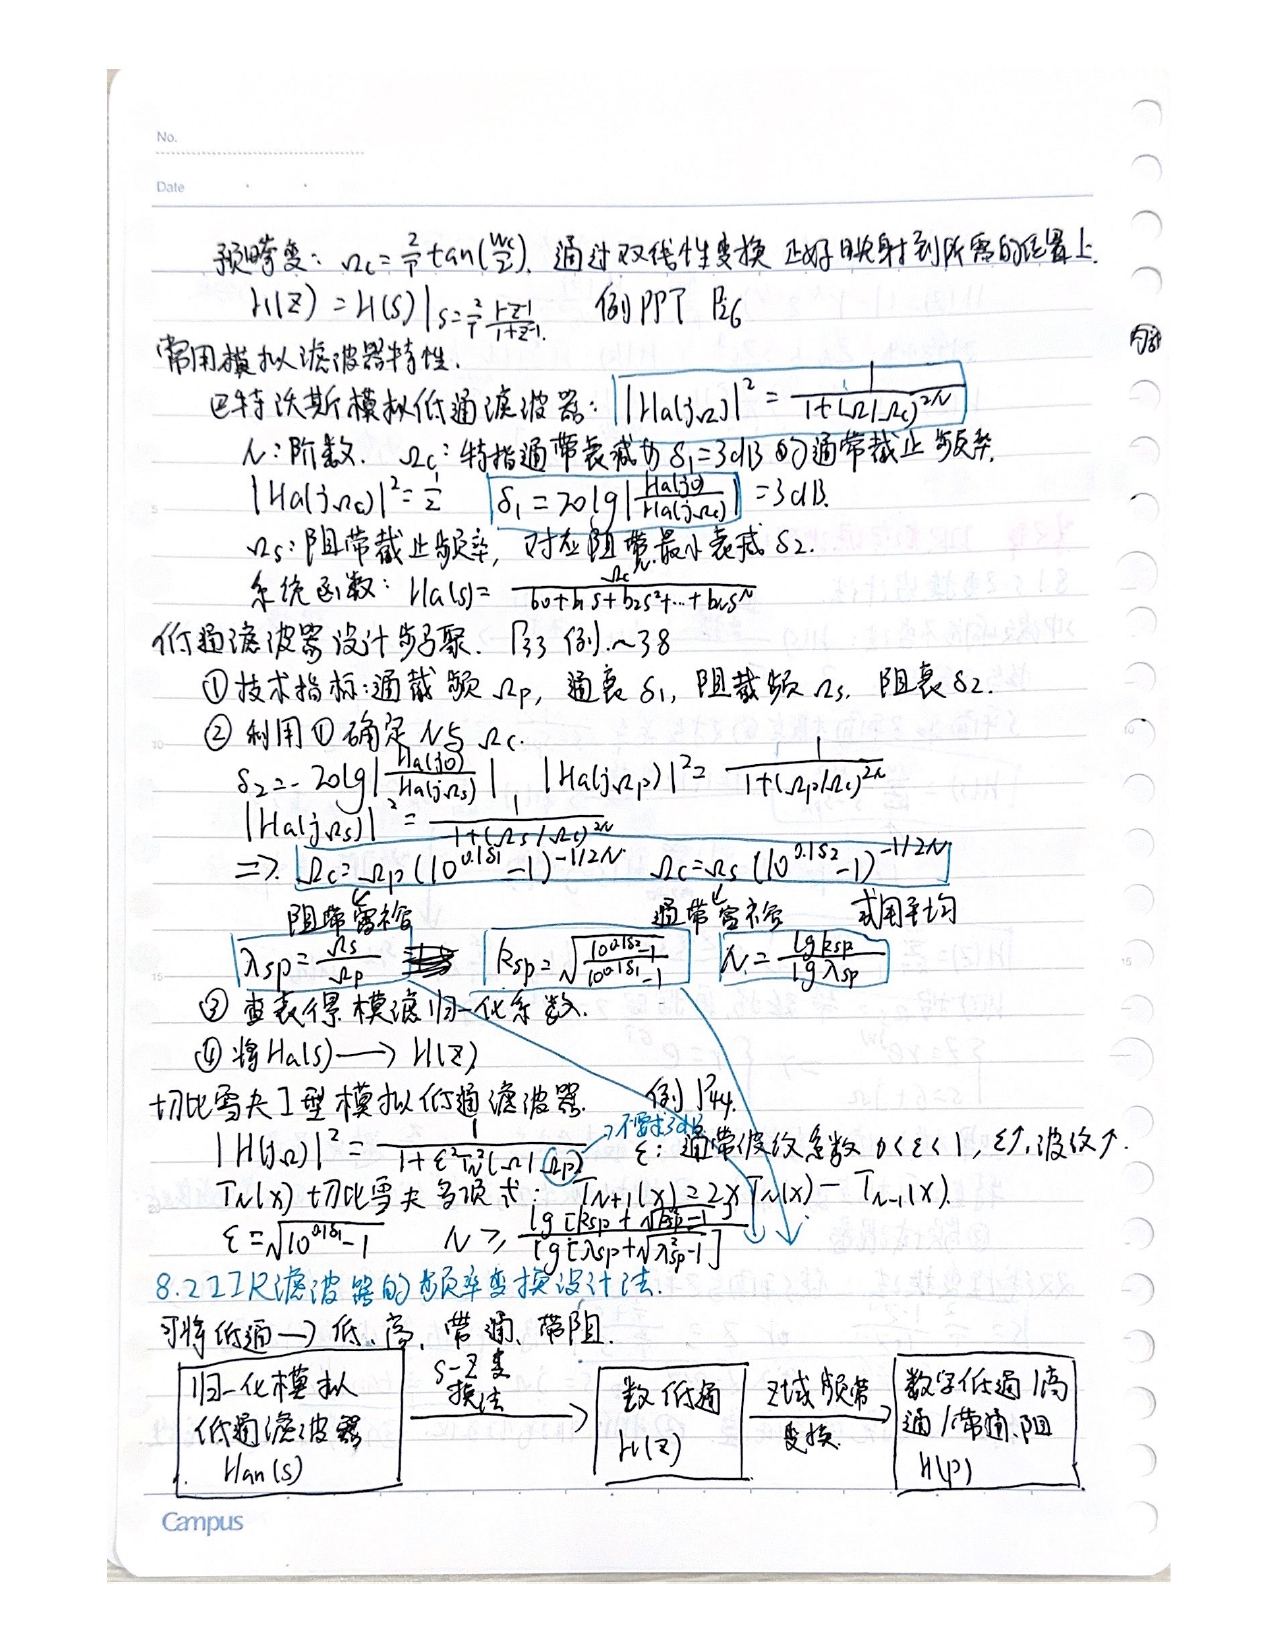 No.
Date
预畸变: Ωc = 2/T tan(Wc/2). 通过双线性变换 正好映射到所需的位置上.
H(Z) = H(S)|s=2/T 1-Z-1/1+Z-1. 例PPT P26
常用模拟滤波器特性.
巴特沃斯模拟低通滤波器: |Ha(jΩ)|² = 1/1+(Ω/Ωc)^2N
N: 阶数. Ωc: 特指通带衰减为 δ1=3dB 的通带截止频率.
|Ha(jΩc)|² = 1/2 δ1 = 20lg|Ha(j0)/Ha(jΩc)| = 3dB.
Ωs: 阻带截止频率, 对应阻带最小衰减 δ2.
系统函数: Ha(s) = Ωc^N/b0+b1s+b2s²+...+bNs^N
低通滤波器设计步骤. P33 例.~38
① 技术指标: 通截频 Ωp, 通衰 δ1, 阻截频 Ωs, 阻衰 δ2.
② 利用①确定 N与 Ωc.
δ2 = 20lg|Ha(j0)/Ha(jΩs)| |Ha(jΩp)|² = 1/1+(Ωp/Ωc)^2N
|Ha(jΩs)|² = 1/1+(Ωs/Ωc)^2N
=> Ωc = Ωp(10^0.1δ1 - 1)^-1/2N Ωc = Ωs(10^0.1δ2 - 1)^-1/2N
阻带富裕 通带富裕 或用平均
λsp = Ωs/Ωp ksp = √(10^0.1δ2 - 1/10^0.1δ1 - 1) N = lgksp/lgλsp
③ 查表得模滤归一化系数.
④ 将Ha(s) → H(Z)
切比雪夫I型模拟低通滤波器. 例 P44.
不要求3dB
|H(jΩ)|² = 1/1+ε²TN²(Ω/Ωp) ε: 通带波纹系数 0<ε<1, ε↑, 波纹↑.
TN(x) 切比雪夫多项式: TN+1(x) = 2xTN(x) - TN-1(x).
ε = √10^0.1δ1 - 1 N ≥ lg[ksp + √k²sp-1]/lg[λsp + √λ²sp-1]
8.2 IIR滤波器的频率变换设计法.
可将低通→低、高、带通、带阻.
归一化模拟
低通滤波器
Han(s)
S-Z变
换法
数低通
H(Z)
Z域频带
变换.
数字低通/高
通/带通.阻
H(p)
Campus